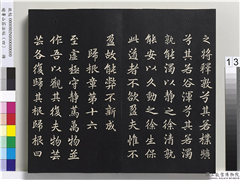 之將釋敦兮其若樸曠
兮其若谷渾兮其若濁
孰能濁以靜之徐清孰
能安以久動之徐生保
此道者不欲盈夫惟不
盈故能弊不新成
歸根章第十六
至虛極守靜篤萬物並
作吾以觀其復夫物芸
芸各復歸其根歸根曰